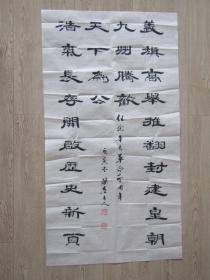 義旗高舉推翻封建皇朝
九州騰歡
天下為公
浩氣長存開啟歷史新頁
紀念辛亥革命一百周年